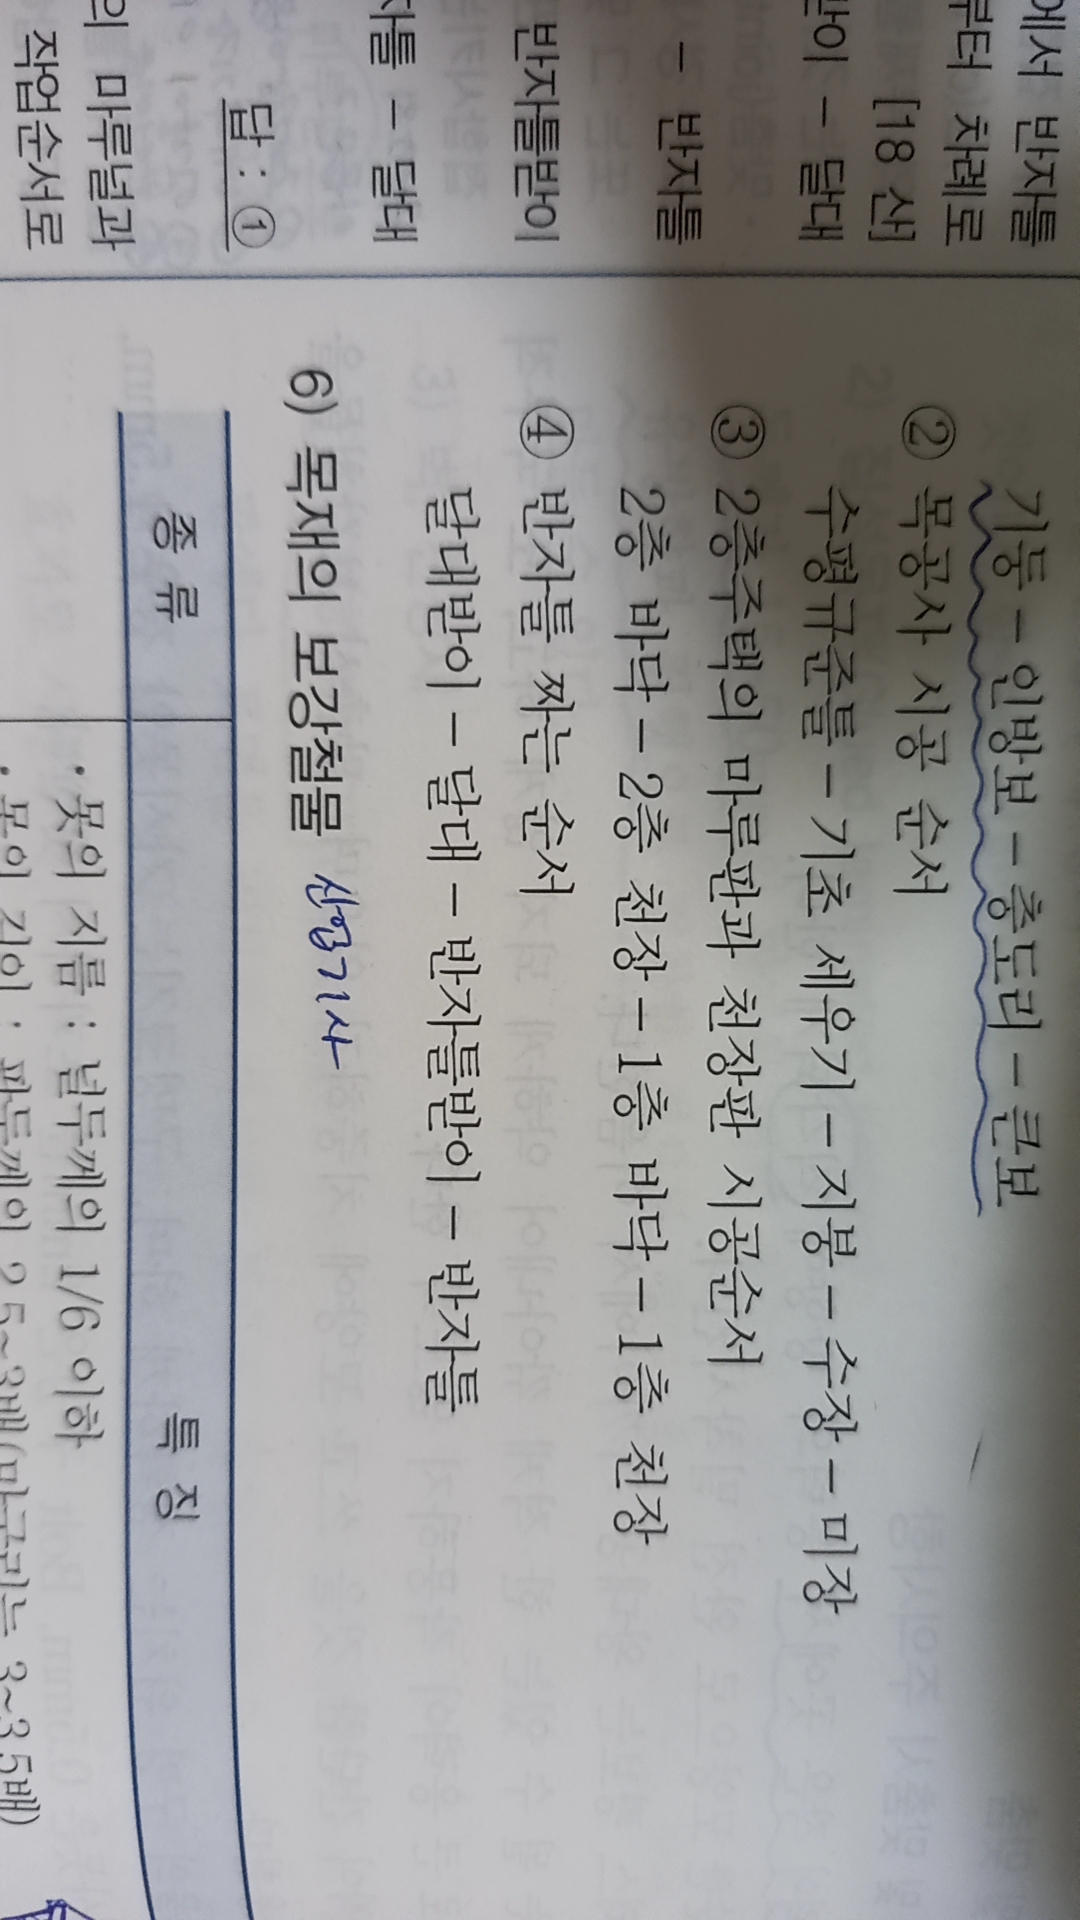 에서 반자틀
부터 차례로
[18 산]
받이 - 달대
- 반자틀
반자틀받이
자틀 - 달대
답 : ①
의 마루널과
작업순서로
기둥 - 인방보 - 층도리 - 큰보
② 목공사 시공 순서
수평규준틀 - 기초 세우기 - 지붕 - 수장 - 미장
③ 2층주택의 마루판과 천장판 시공순서
2층 바닥 - 2층 천장 - 1층 바닥 - 1층 천장
④ 반자틀 짜는 순서
달대받이 - 달대 - 반자틀받이 - 반자틀
6) 목재의 보강철물 산업기사
종 류 특 징
• 못의 지름 : 널두께의 1/6 이하
• 못의 길이 : 판두께의 2.5~3배(마구리는 3~3.5배)